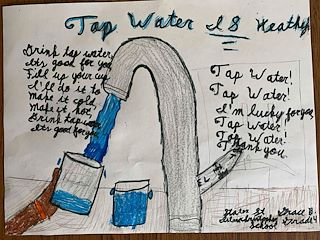 Tap Water IS Heathy
Drink tap water
Its good for you
Fill up your cup
I'll do it to
Make it cold
Make it hot
Drink tap water
Its good for you
Tap Water!
Tap Water!
I'm lucky for you
Tap Water
Tap Water!
Thank you.
Grace B.
Elementary
School Grade 4